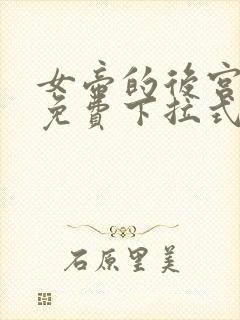 女帝的後宮
免費下拉式
石原里美